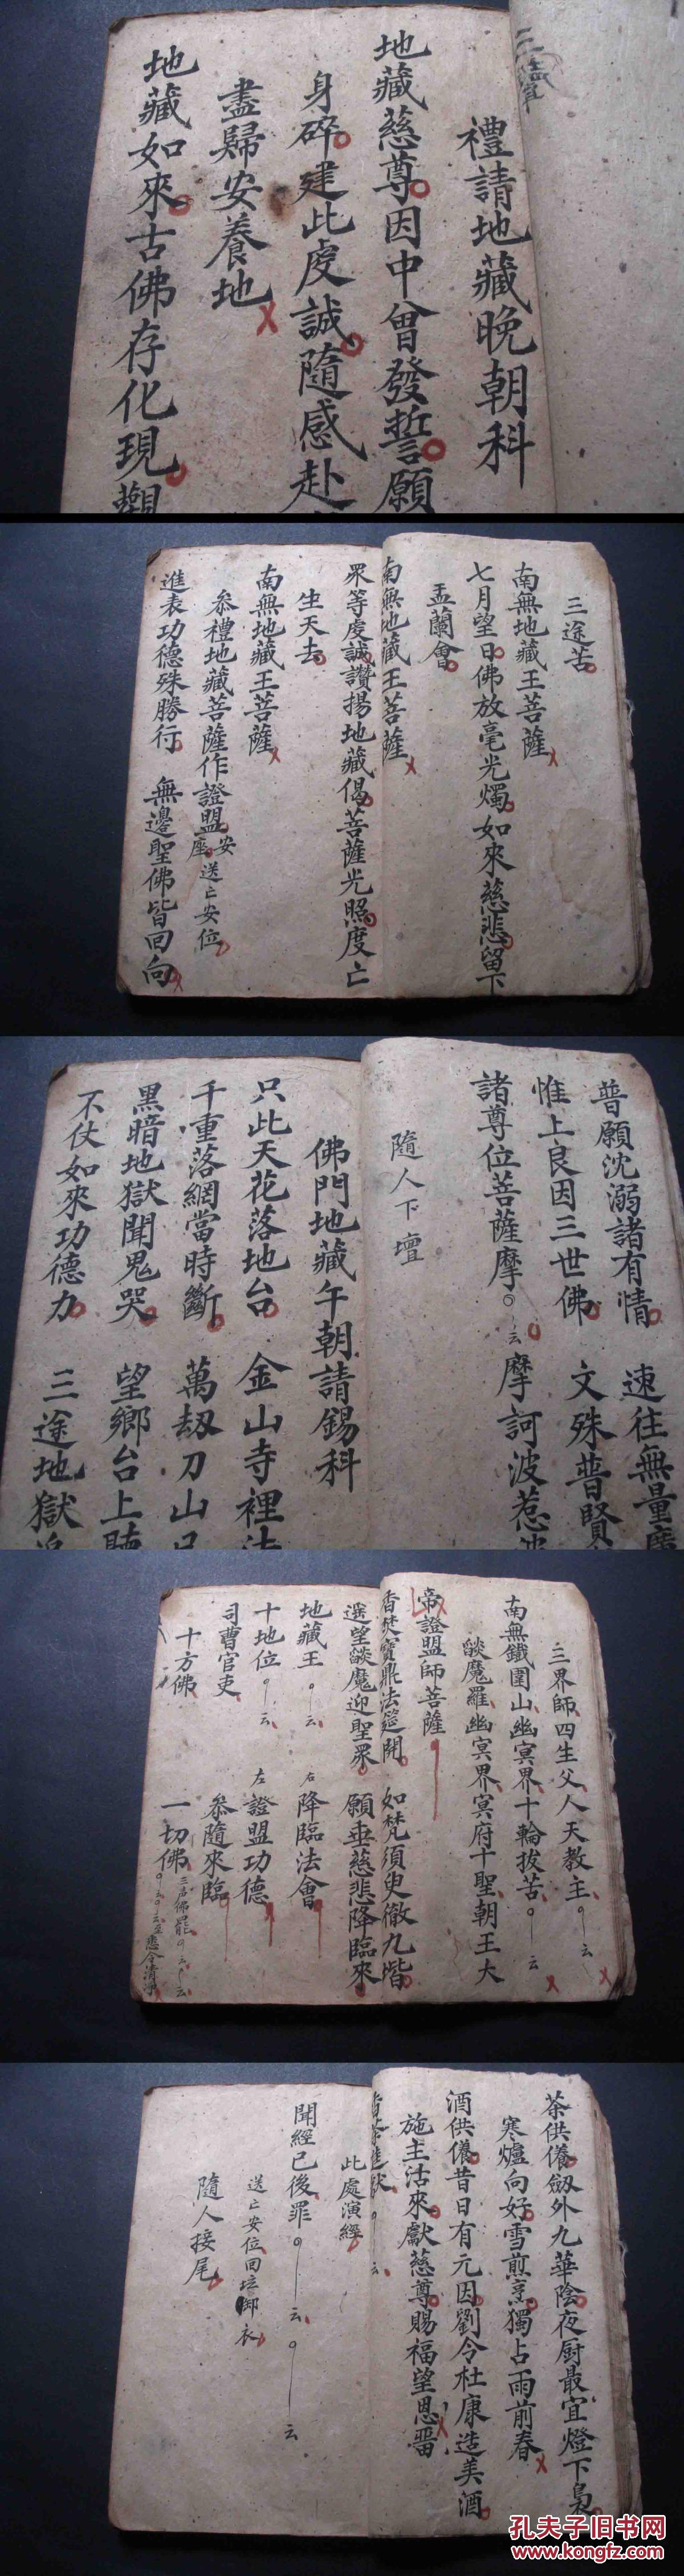 禮請地藏晚朝科
地藏慈尊因中曾發誓願
身碎建此虔誠隨感赴
盡歸安養地
地藏如來古佛存化現觀
三途苦
南無地藏王菩薩
七月望日佛放毫光燭如來慈悲留下
盂蘭會
南無地藏王菩薩
眾等虔誠讚揚地藏偈菩薩光照度亡
生天去
南無地藏王菩薩
叅禮地藏菩薩作證盟安座送亡安位
進表功德殊勝行 無邊聖佛皆回向
普願沈溺諸有情 速往無量
惟上良因三世佛 文殊普賢
諸尊位菩薩摩云摩訶波惹
隨人下壇
佛門地藏午朝請錫科
只此天花落地台 金山寺裡
千重落網當時斷 萬劫刀山
黑暗地獄聞鬼哭 望鄉台上聽
不仗如來功德力 三途地獄
三界師四生父人天教主云
南無鐵圍山幽冥界十輪拔苦云
燄魔羅幽冥界冥府十聖朝王大
帝證盟師菩薩
香焚寶鼎法筵開 如梵須臾徹九堦
遥望燄魔迎聖眾 願垂慈悲降臨來
地藏王云 右降臨法會
十地位云 左證盟功德
司曹官吏 叅隨來臨
十方佛 一切佛
茶供儀劔外九華陰夜厨最宜燈下
寒爐向好雪煎烹獨占雨前春
酒供儀昔日有元因劉令杜康造美酒
施主沽來獻慈尊賜福望恩畱
香茶進獻云
此處演經
聞經已後罪云云
送亡安位回坛御衣
隨人接尾
孔夫子旧书网
www.kongfz.com